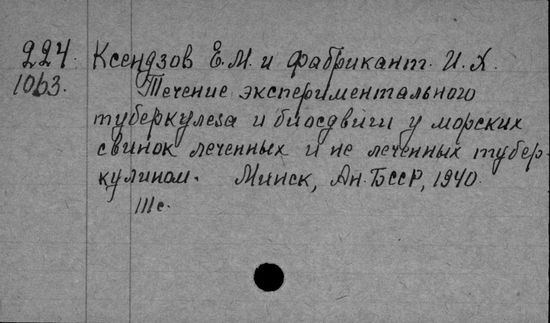 224. Ксендзов Е.М. и Фабрикант. И.Х.
1063. Течение экспериментального
туберкулеза и биосдвиги у морских
свинок леченных и не леченных тубер-
кулином. Минск, Ан. БССР, 1940.
111 с.